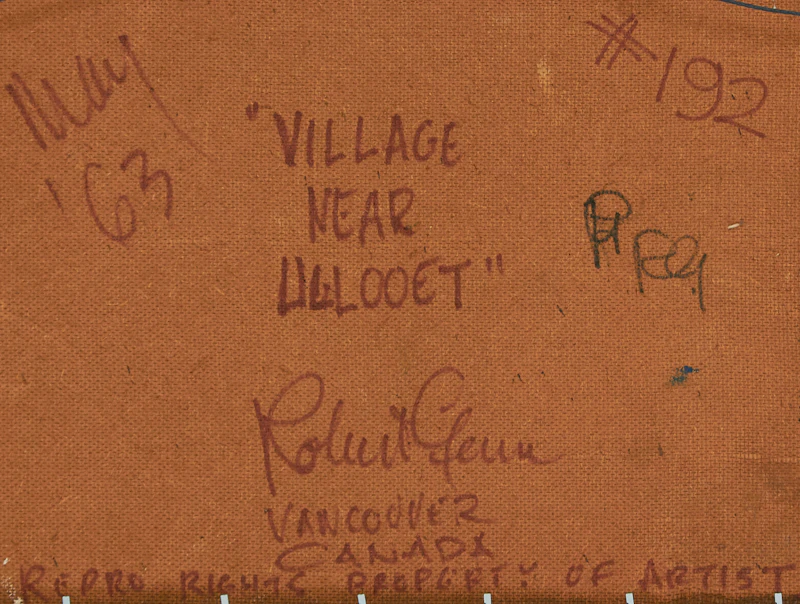 May
'63
#192
"VILLAGE
NEAR
LILLOOET"
Robert Genn
VANCOUVER
CANADA
REPRO RIGHTS PROPERTY OF ARTIST